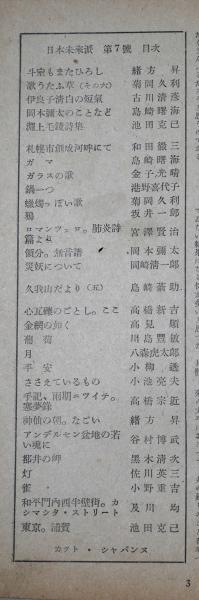 日本未來派 第7號 目次
斗室もまたひろし 緒方 昇
歌うたふ草(その六) 菊岡久利
伊良子清白の短氣 古川清彦
岡本彌太のことなど 島崎曙海
淵上毛錢詩集 池田克己
札幌市創成河畔にて 和田徹三
ガマ 島崎曙海
ガラスの歌 金子光晴
鍋一つ 港野喜代子
蠟燭つぽい歌 菊岡久利
鴉 坂井一郎
ロマンツェロ。肺炎詩
篇より 宮澤賢治
傾分。無言譜 岡本彌太
災妖について 岡崎清一郎
久我山だより(五) 島崎蓊助
心瓦礫のごとし。ここ 高橋新吉
金網の如く 高見 順
葡萄 川島豐敏
月 八森虎太郎
平安 小柳 透
ささえているもの 小池亮夫
手記、雨期ニツイテ。
塞夢錄 高橋宗近
神仙の朝。なごい 緒方 昇
アンデルセン盆地の若
い魂に 谷村博武
都井の岬 黑木清次
灯 佐川英三
雀 小野重吉
和平門內西半壁街。カ
シマシタ・ストリート 及川 均
東京。浦賀 池田克己
カット・シャバンヌ
3